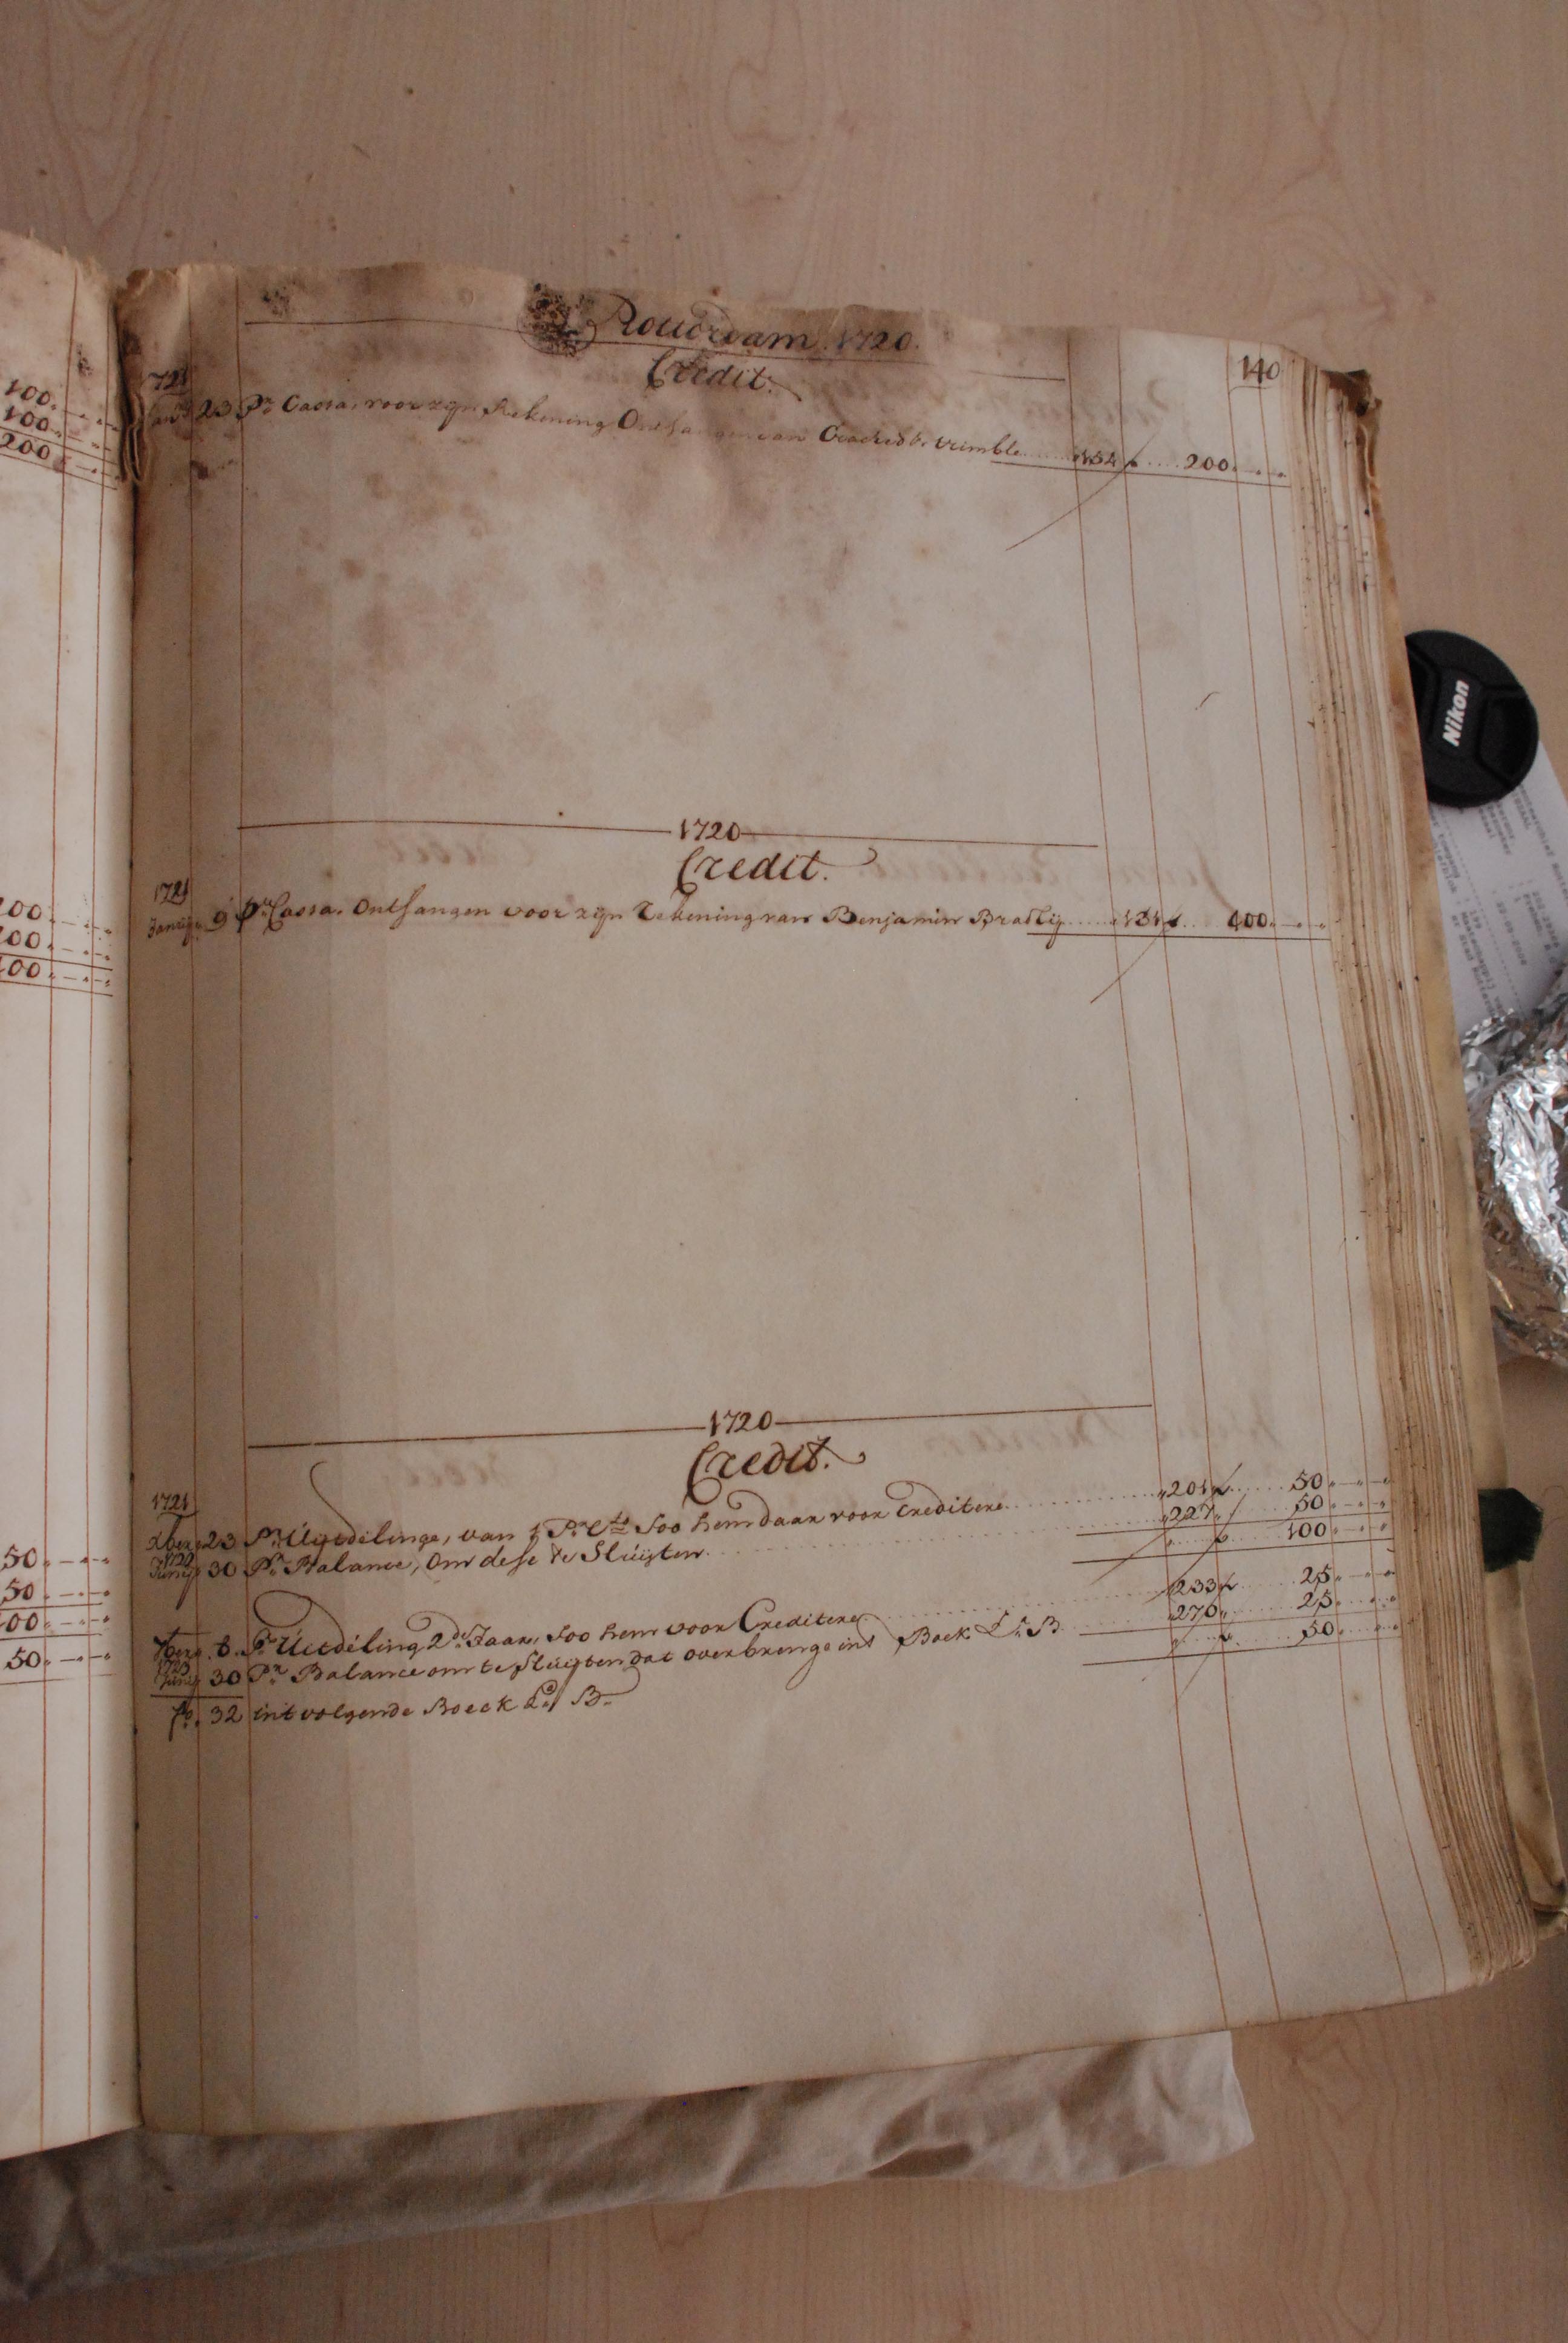 100
100
200
Rotterdam. 1720.
140
Credit.
1721
23 Pr. Cassa, voor zijn Rekening Ontfangen van 154 f 200
1720
Credit.
1721
Januarij 9 Pr. Cassa. Ontfangen voor zijn Rekening van Benjamin Bradlij 131 f 400
100
100
1720
Credit.
1721
Xber 23 Pr. Uijtdilinge, van 1 Pr. Cto Soo hem daar voor Crediteere 201 f 50
1722
Junij 30 Pr. Balance, Om dese te Sluijten 227 50
f 100
7ber 8 Pr. Uitdeling 2de Jaar, Soo hem voor Crediteere 233 f 25
1723
Junij 30 Pr. Balance om te Sluijten dat overbrenge int Boek La. B 270 25
f 50
fo. 32 int volgende Boeck La. B.
50
50
100
50
Nikon